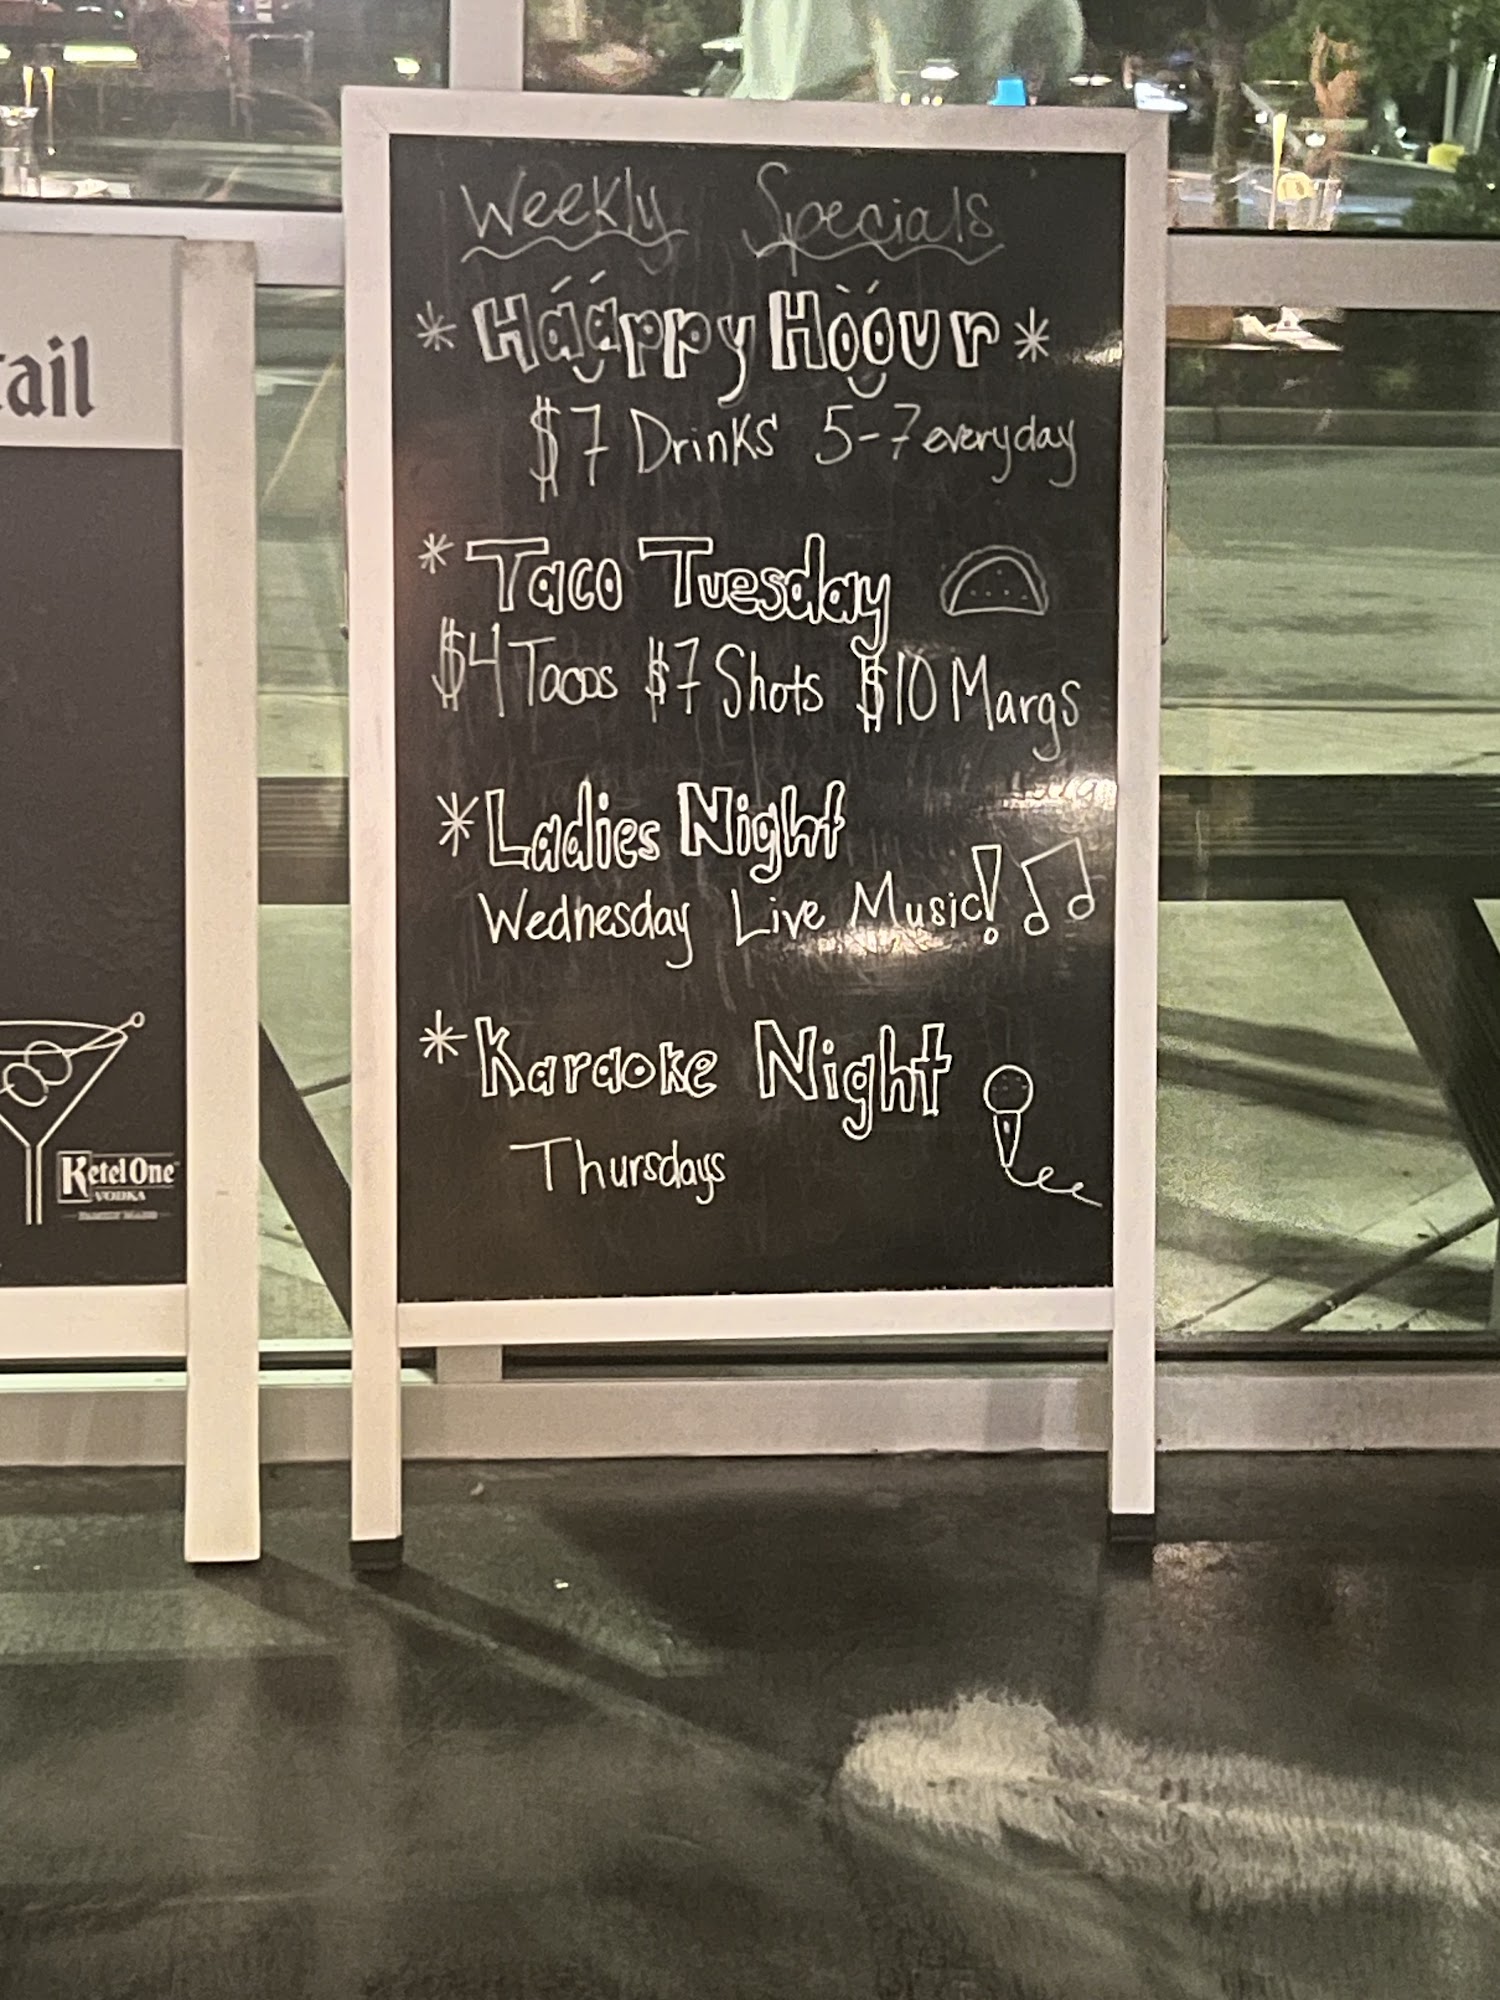 Weekly Specials
* Haappy Hoour *
$7 Drinks 5-7 everyday
* Taco Tuesday
$4 Tacos $7 Shots $10 Margs
* Ladies Night
Wednesday Live Music!
* Karaoke Night
Thursdays
ail
Ketel One
VODKA
FAMILY MADE